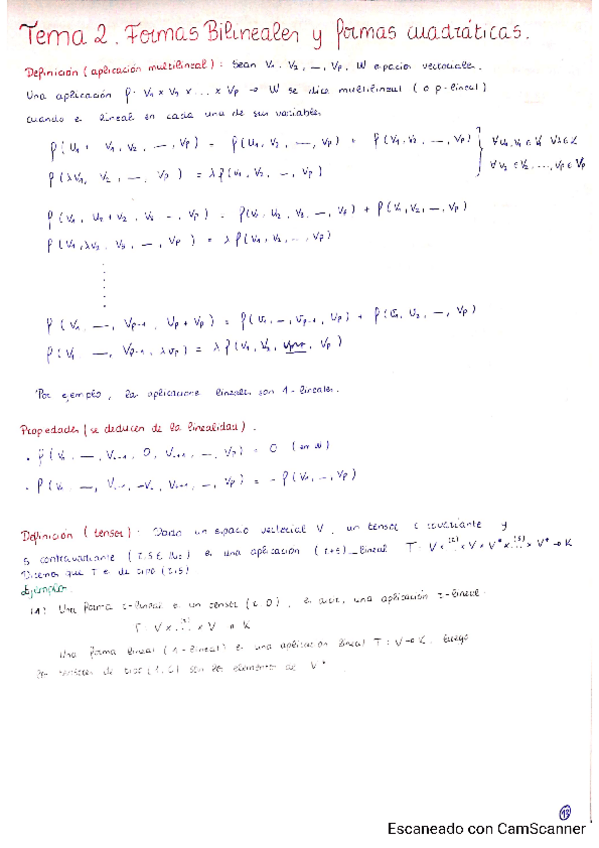 Tema 2. Formas Bilineales y formas cuadráticas.
Definición (aplicación multilineal): Sean V₁, V₂, —, Vp, W espacios vectoriales.
Una aplicación f: V₁ × V₂ × ... × Vp → W se dice multilineal (o p-lineal)
cuando es lineal en cada una de sus variables
f(u₁ + v₁, v₂, —, vp) = f(u₁, v₂, —, vp) + f(v₁, v₂, —, vp)
f(λv₁, v₂, —, vp) = λ f(v₁, v₂, —, vp)
∀u₁, v₁ ∈ V₁ ∀λ ∈ K
∀v₂ ∈ V₂, ..., vp ∈ Vp
f(v₁, u₂ + v₂, v₃, —, vp) = f(v₁, u₂, v₃, —, vp) + f(v₁, v₂, —, vp)
f(v₁, λv₂, v₃, —, vp) = λ f(v₁, v₂, ..., vp)
f(v₁, —, vp-1, up + vp) = f(v₁, —, vp-1, up) + f(v₁, v₂, —, vp)
f(v₁, —, vp-1, λvp) = λ f(v₁, v₂, vp)
Por ejemplo, las aplicaciones lineales son 1-lineales.
Propiedades (se deducen de la linealidad).
· f(v₁, —, 0, —, vp) = 0 (en W)
· f(v₁, —, —, vp) = - f(v₁, —, vp)
Definición (tensor): Dado un espacio vectorial V, un tensor r covariante y
s contravariante (r, s ∈ ℕ) es una aplicación (r+s)-lineal T: V × (r) × V × V* × (s) × V* → K
Diremos que T es de tipo (r,s)
Ejemplo
1) Una forma r-lineal es un tensor (r,0), es decir, una aplicación r-lineal
T: V × (r) × V → K
Una forma lineal (1-lineal) es una aplicación lineal T: V → K, luego
los tensores de tipo (1,0) son los elementos de V*.
Escaneado con CamScanner